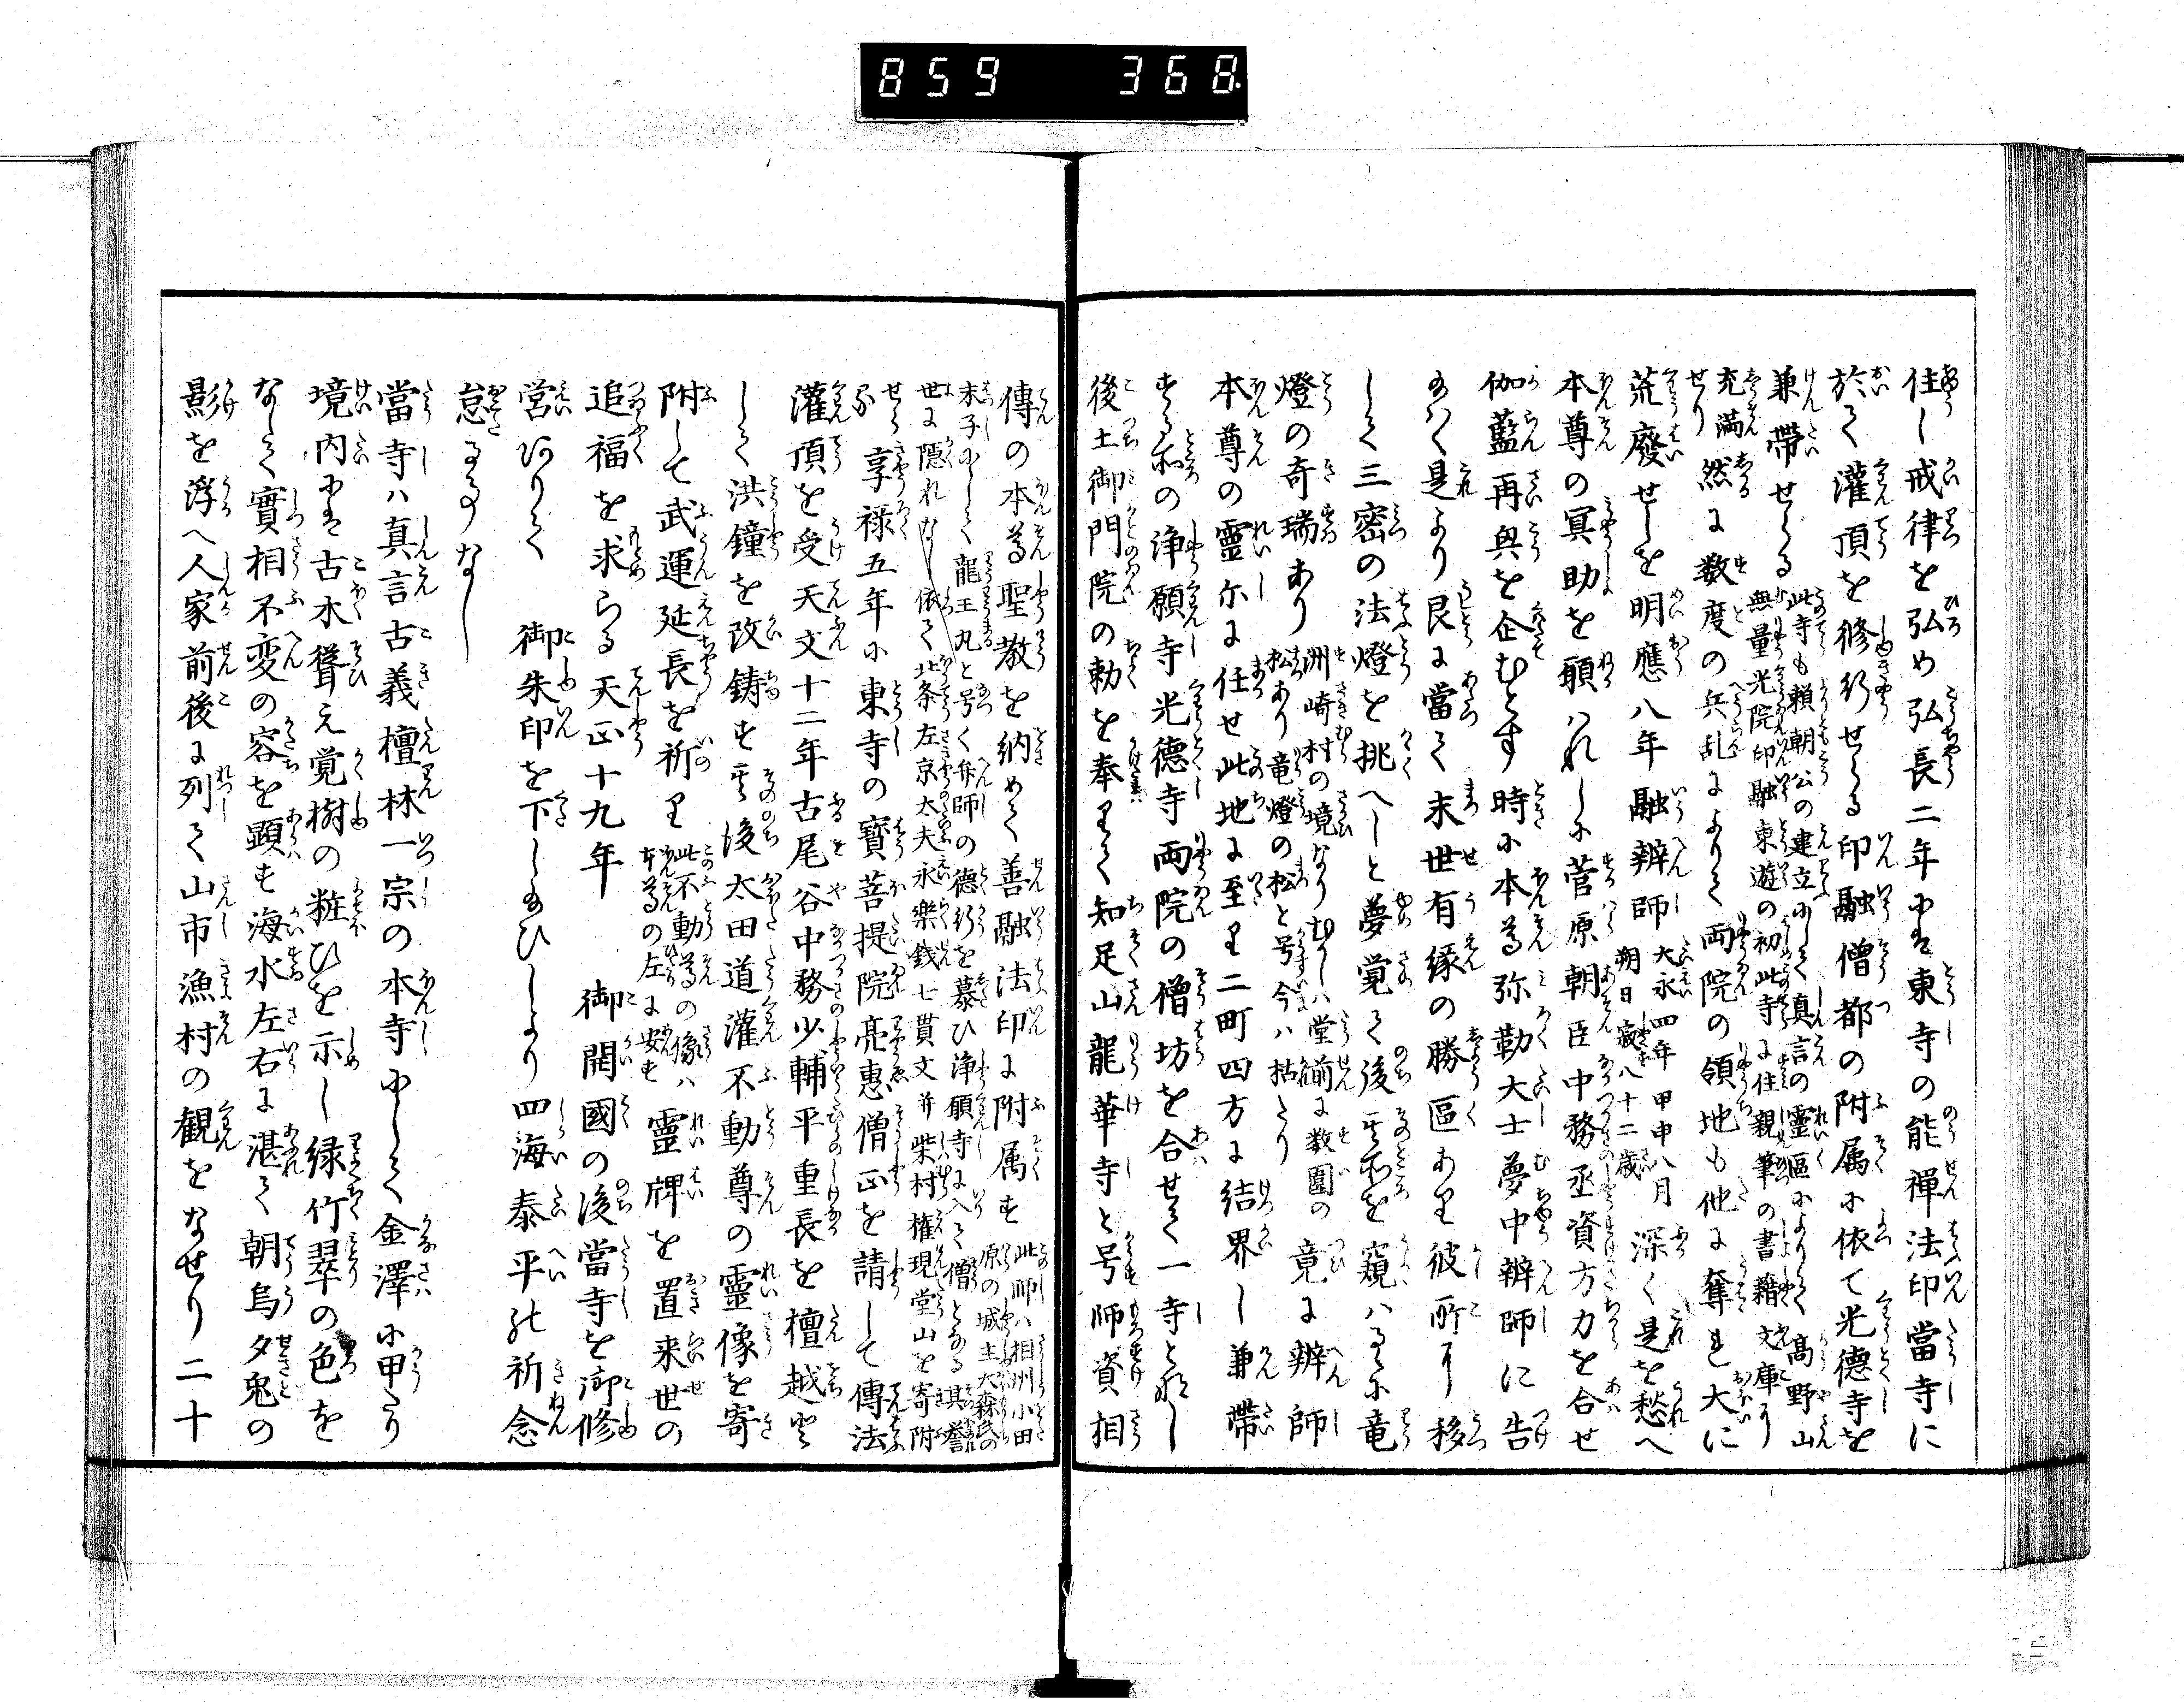 859 368
住し戒律を弘め弘長二年には東寺の能禪法印當寺に
於て灌頂を修行せらる印融僧都の附属に依て光德寺を
兼帶せらる
此寺も頼朝公の建立にして真言の靈區によりて高野山
無量光院印融東遊の初此寺に住親筆の書籍文庫に
充満せり
然に数度の兵乱によりて両院の領地も他に奪れ大に
荒廢せしを明應八年融辨師
大永四年甲申八月
朔日寂八十二歳
深く是を愁へ
本尊の冥助を願はれしに菅原朝臣中務丞資方力を合せ
伽藍再興を企むとす時に本尊弥勒大士夢中辨師に告
給はく是より艮に當て末世有縁の勝區あり彼所に移
して三密の法燈を挑へしと夢覚て後其所を窺はるに竜
燈の奇瑞あり
洲崎村の境なりむかしハ堂前に数圍の
松あり竜燈の松と号今ハ枯たり
竟に辨師
本尊の靈尓に任せ此地に至り二町四方に結界し兼帶
する所の浄願寺光德寺両院の僧坊を合せて一寺と形し
後土御門院の勅を奉りて知足山龍華寺と号師資相
傳の本尊聖教を納めて善融法印に附属す
此師ハ相州小田
原の城主大森氏の
末子にして龍王丸と号く弁師の德行を慕ひ浄願寺に入て僧となる其誉
世に隠れなし依て北条左京太夫永樂銭七貫文并柴村権現堂山を寄附
せらる
享禄五年に東寺の寳菩提院亮惠僧正を請して傳法
灌頂を受天文十二年古尾谷中務少輔平重長を檀越と
して洪鐘を改鋳す其後太田道灌不動尊の靈像を寄
附して武運延長を祈り
此不動尊の像ハ
本尊の左に安す
靈牌を置来世の
追福を求らる天正十九年 御開國の後當寺を御修
営ありて 御朱印を下し給ひしより四海泰平の祈念
怠る事なし
當寺ハ真言古義檀林一宗の本寺にして金澤に甲たり
境内には古木聳え覚樹の粧ひを示し緑竹翠の色を
なして實相不変の容を顕す海水左右に湛て朝烏夕兎の
影を浮へ人家前後に列て山市漁村の観をなせり二十